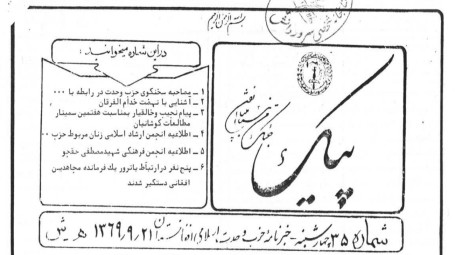 بسم الله الرحمن الرحیم
در این شماره میخوانید:
۱ - مصاحبه سخنگوی حزب وحدت در رابطه با ۰۰۰
۲ - آشنایی با نهضت خدام الفرقان
۳ - پیام نجیب وخالقیار بمناسبت هفتمین سمینار مطالعات کوشانیان
۴ - اطلاعیه انجمن ارشاد اسلامی زنان مربوط حزب ۰۰
۵ - اطلاعیه انجمن فرهنگی شهید مصطفی حقجو
۶ - پنج نفر در ارتباط با ترور یک فرمانده مجاهدین افغانی دستگیر شدند
پیک
شماره ۳۵ چهارشنبه - خبرنامه حزب وحدت اسلامی افغانستان ۱۳۶۹٫۹٫۲۱ ه ش